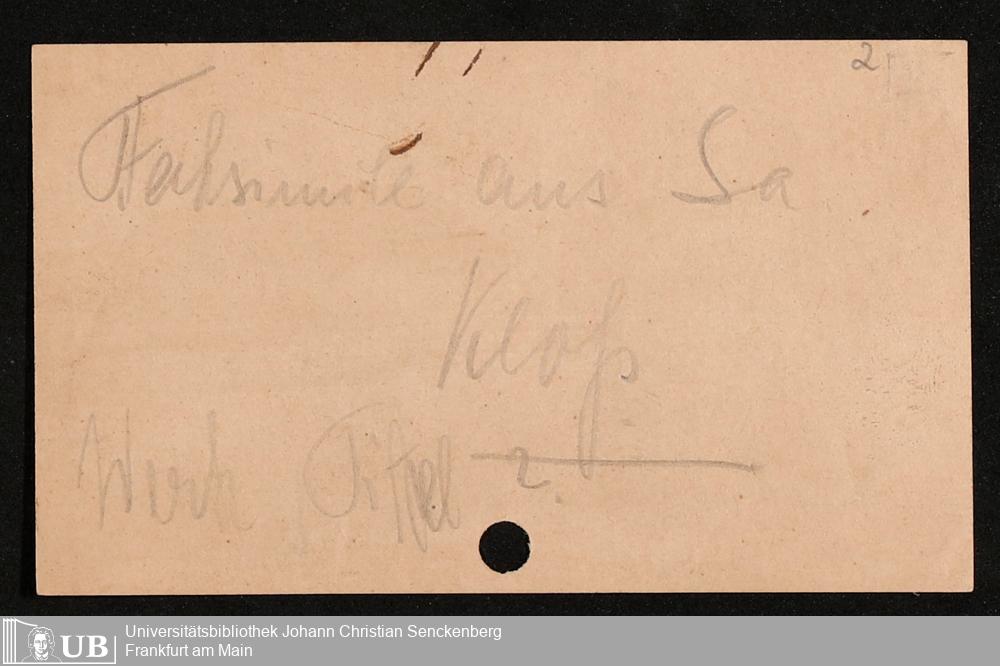 2
Faksimile aus Sa
Kloß
Werk Titel ?
UB Universitätsbibliothek Johann Christian Senckenberg
Frankfurt am Main